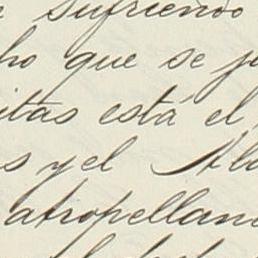 sufriendo
ho que se
itas está el
s y el Al
atropellan